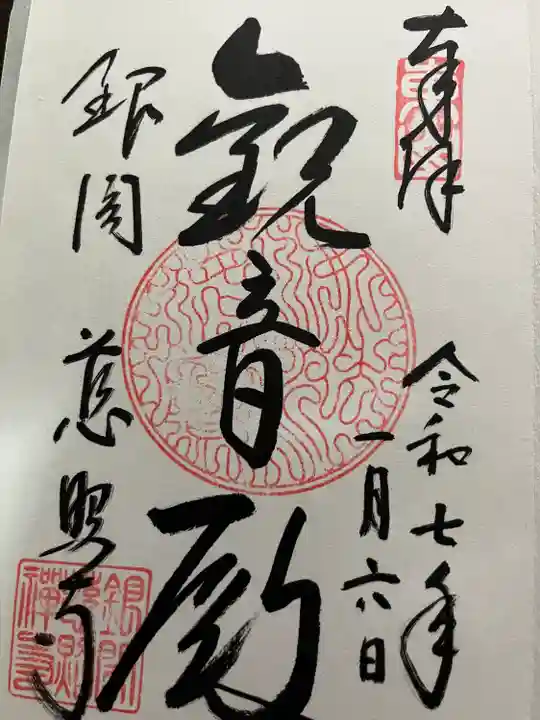 奉拝
令和七年
一月六日
観音殿
銀閣
慈照寺
銀閣
慈照
禅寺